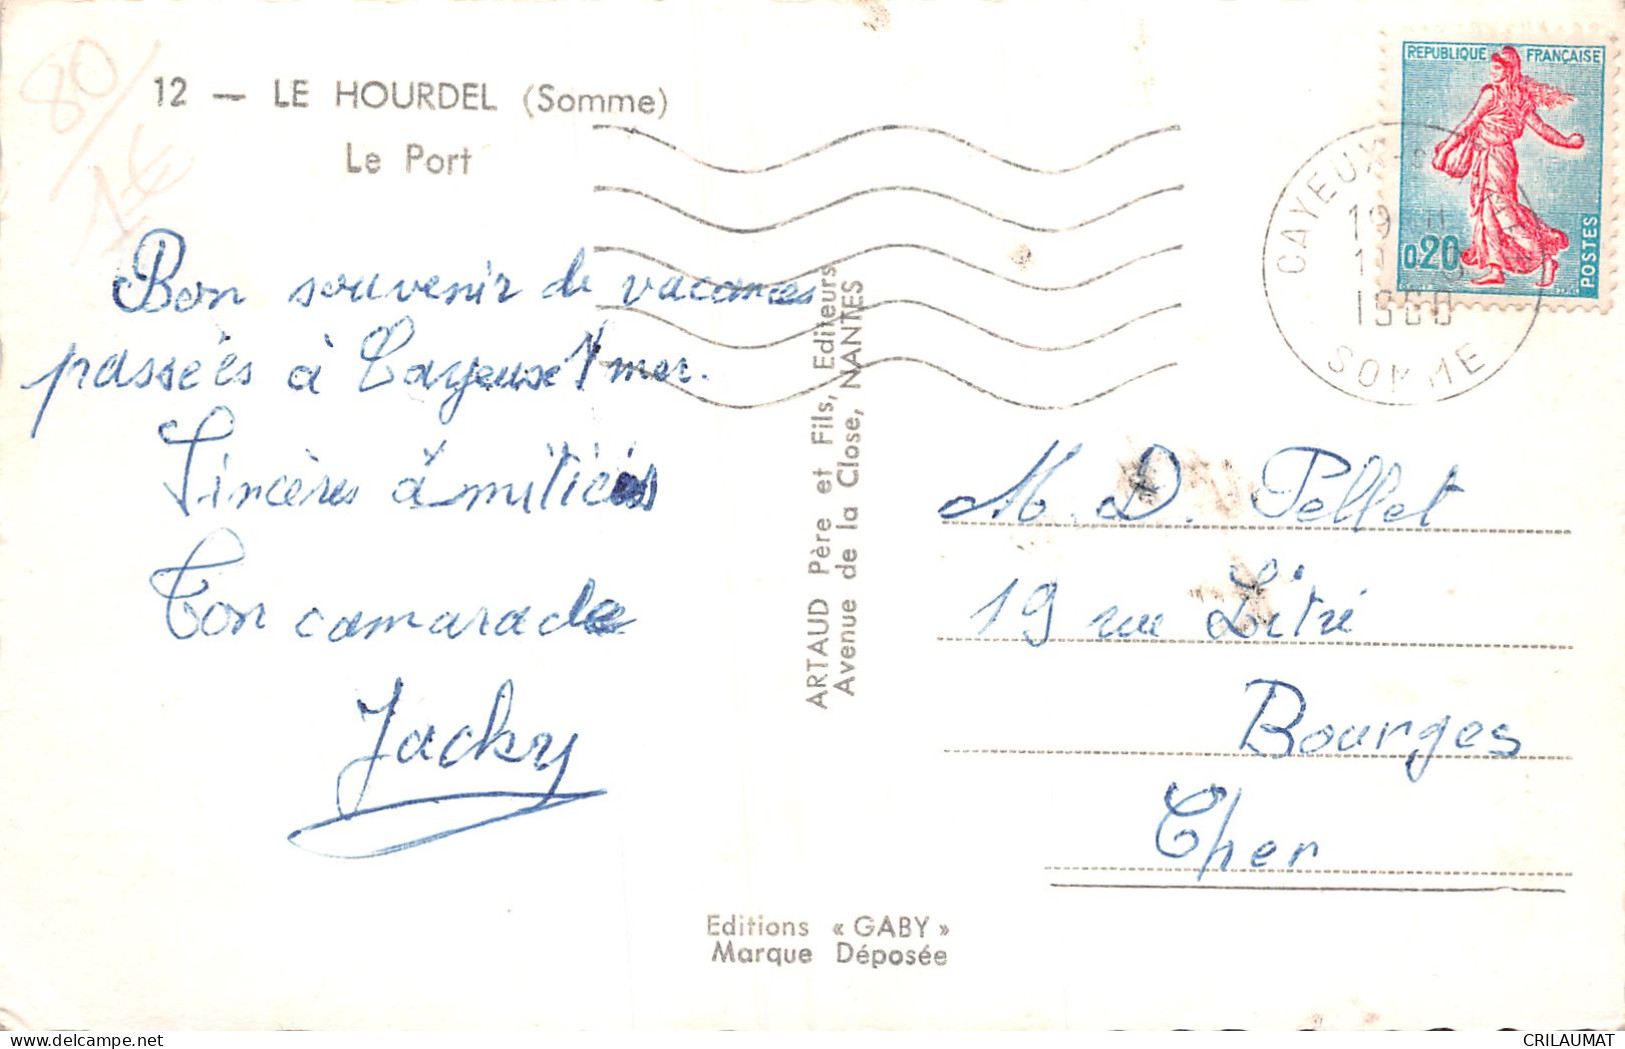 80/
1€
12 — LE HOURDEL (Somme)
Le Port
Bon souvenir de vacances
passées à Cayeux s/ mer.
Sincères amitiés
Ton camarade
Jacky
ARTAUD Père et Fils, Editeurs
Avenue de la Close, NANTES
Editions « GABY »
Marque Déposée
REPUBLIQUE FRANÇAISE
0,20
POSTES
CAYEUX
SOMME
19
11
M. D. Pellet
19 rue Litré
Bourges
Cher
www.delcampe.net
CRILAUMAT